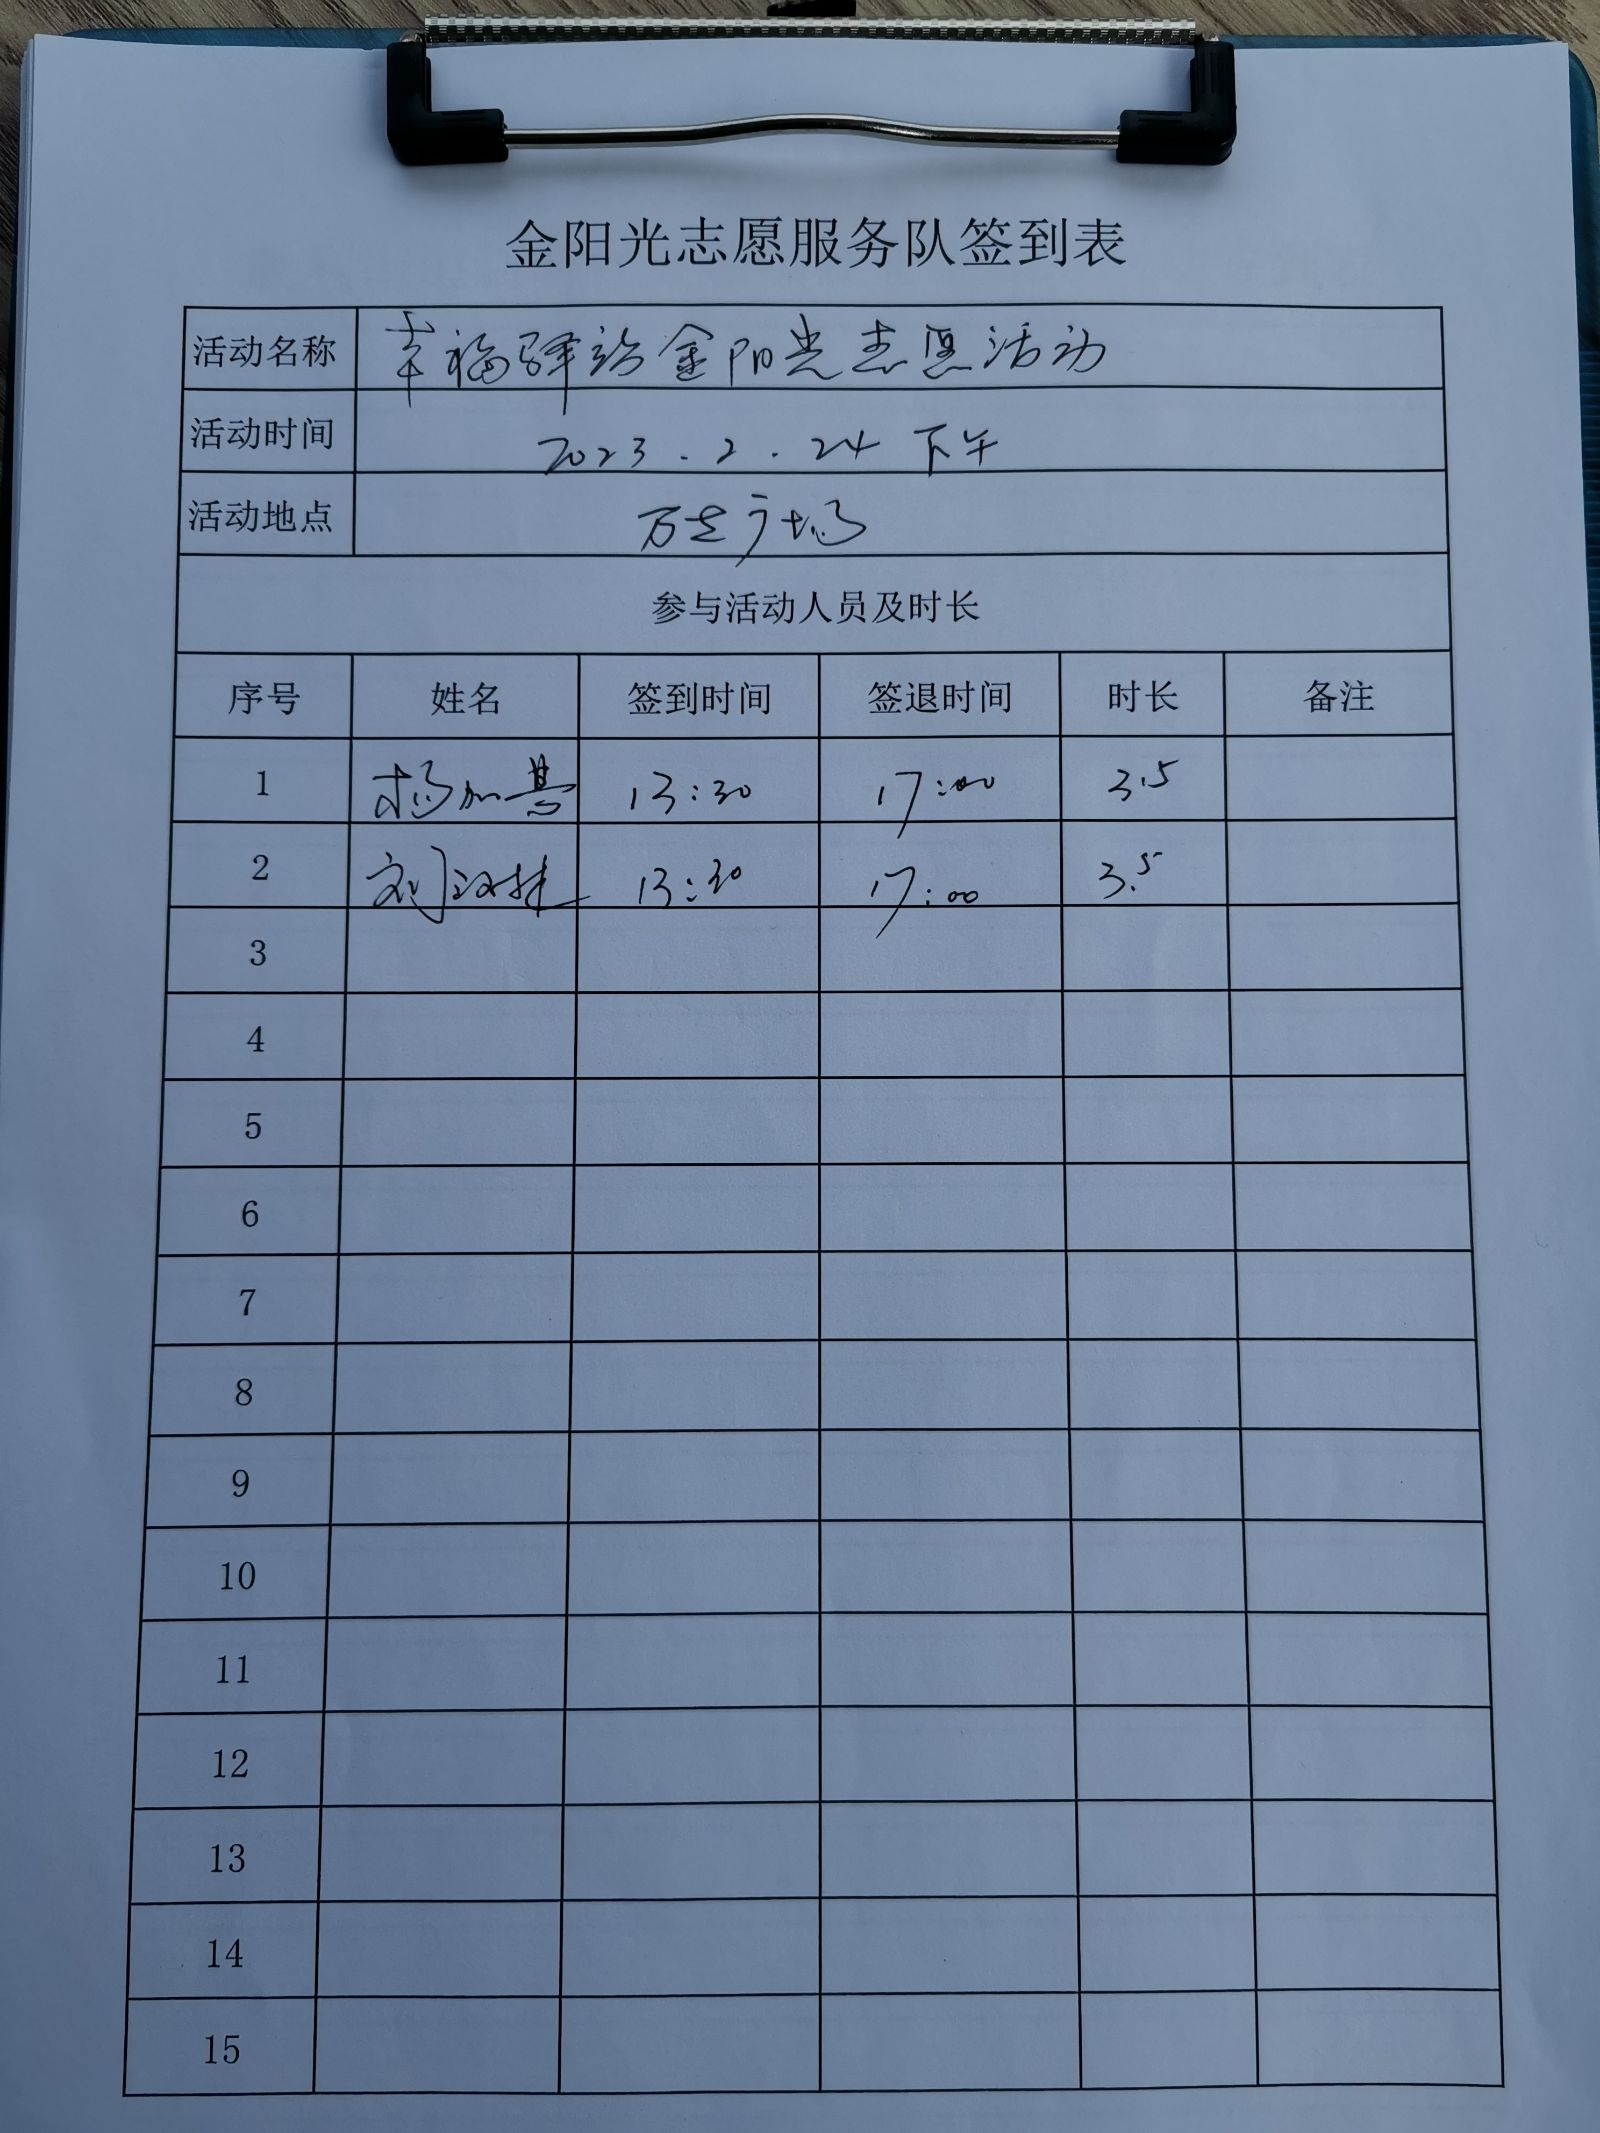 金阳光志愿服务队签到表
活动名称 幸福驿站金阳光志愿活动
活动时间 2023.2.24 下午
活动地点 万达广场
参与活动人员及时长
序号 姓名 签到时间 签退时间 时长 备注
1 杨加慧 13:30 17:00 3.5
2 刘汉 13:30 17:00 3.5
3
4
5
6
7
8
9
10
11
12
13
14
15